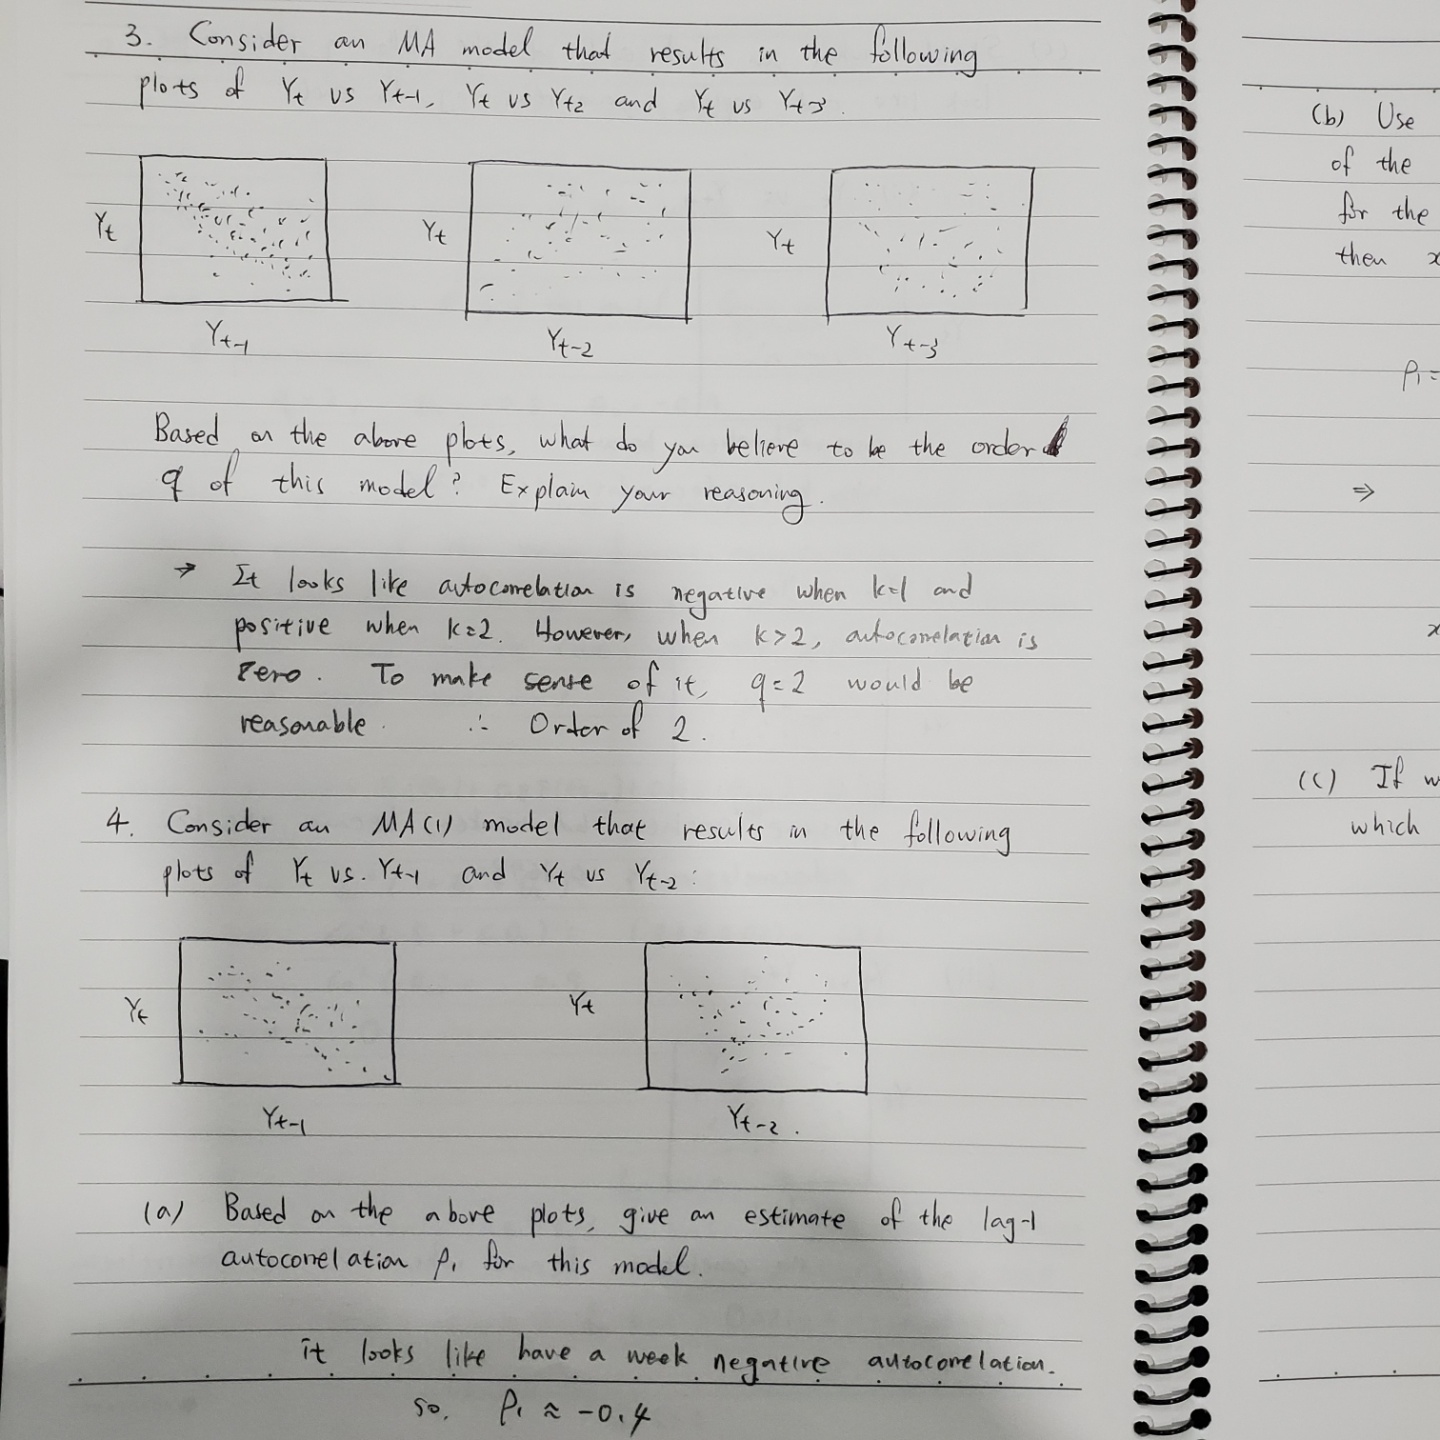 3. Consider an MA model that results in the following
plots of Yt vs Yt-1, Yt vs Yt2 and Yt vs Yt-3.
Yt
Yt-1
Yt
Yt-2
Yt
Yt-3
Based on the above plots, what do you believe to be the order
q of this model? Explain your reasoning.
→ It looks like autocorrelation is negative when k=1 and
positive when k=2. However, when k>2, autocorrelation is
zero. To make sense of it, q=2 would be
reasonable. ∴ Order of 2.
4. Consider an MA(1) model that results in the following
plots of Yt vs. Yt-1 and Yt vs Yt-2:
Yt
Yt-1
Yt
Yt-2.
(a) Based on the above plots, give an estimate of the lag-1
autocorrelation ρ1 for this model.
it looks like have a week negative autocorrelation.
so, ρ1 ≈ -0.4
(b) Use
of the
for the
then
ρ1=
⇒
(c) If
which